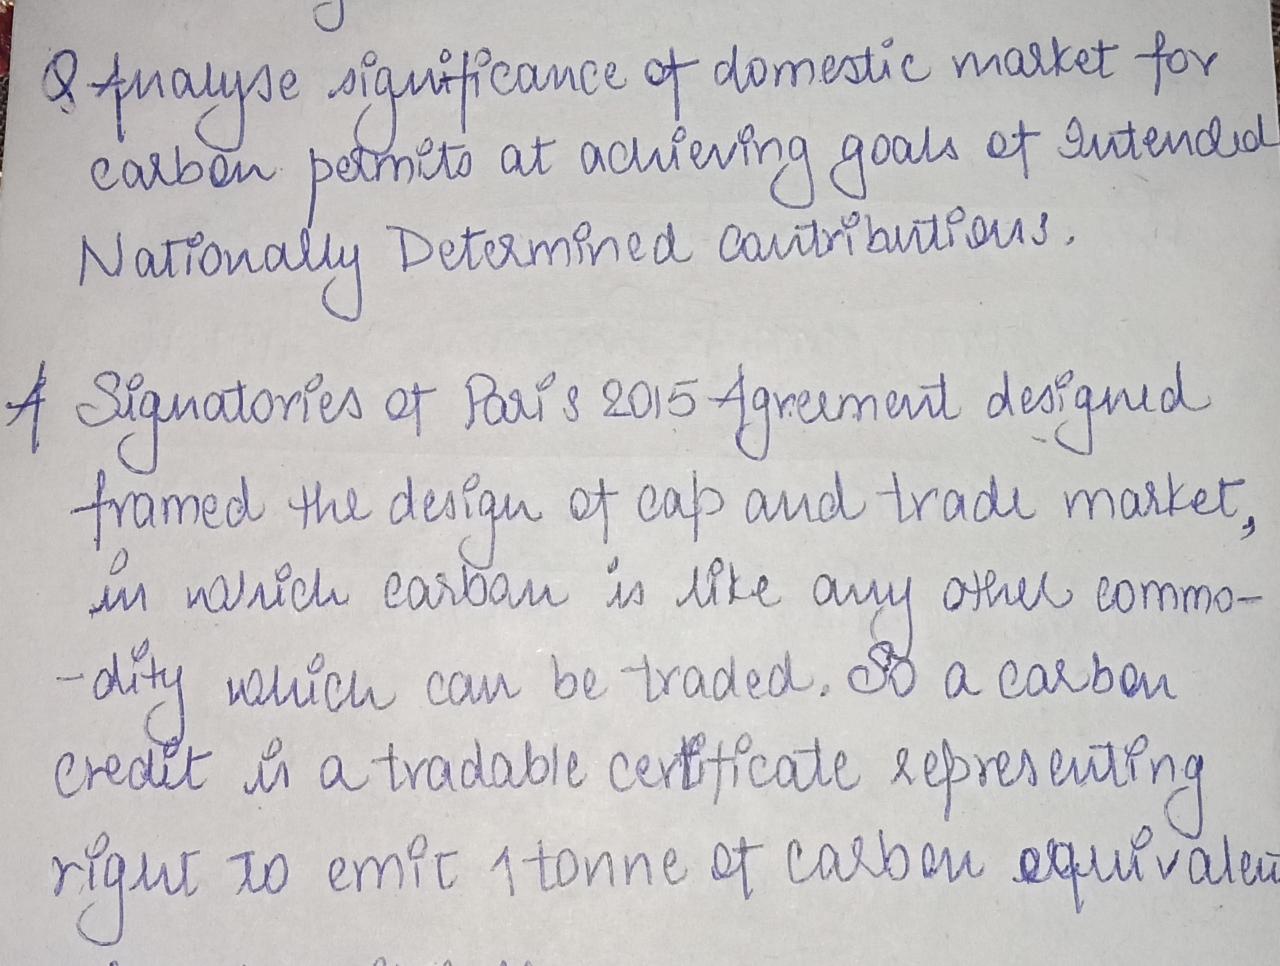 Q Analyse significance of domestic market for
carbon permits at achieving goals of Intended
Nationally Determined contributions.
A Signatories of Paris 2015 Agreement designed
framed the design of cap and trade market,
in which carbon is like any other commo-
-dity which can be traded. So a carbon
credit is a tradable certificate representing
right to emit 1 tonne of carbon equivalent